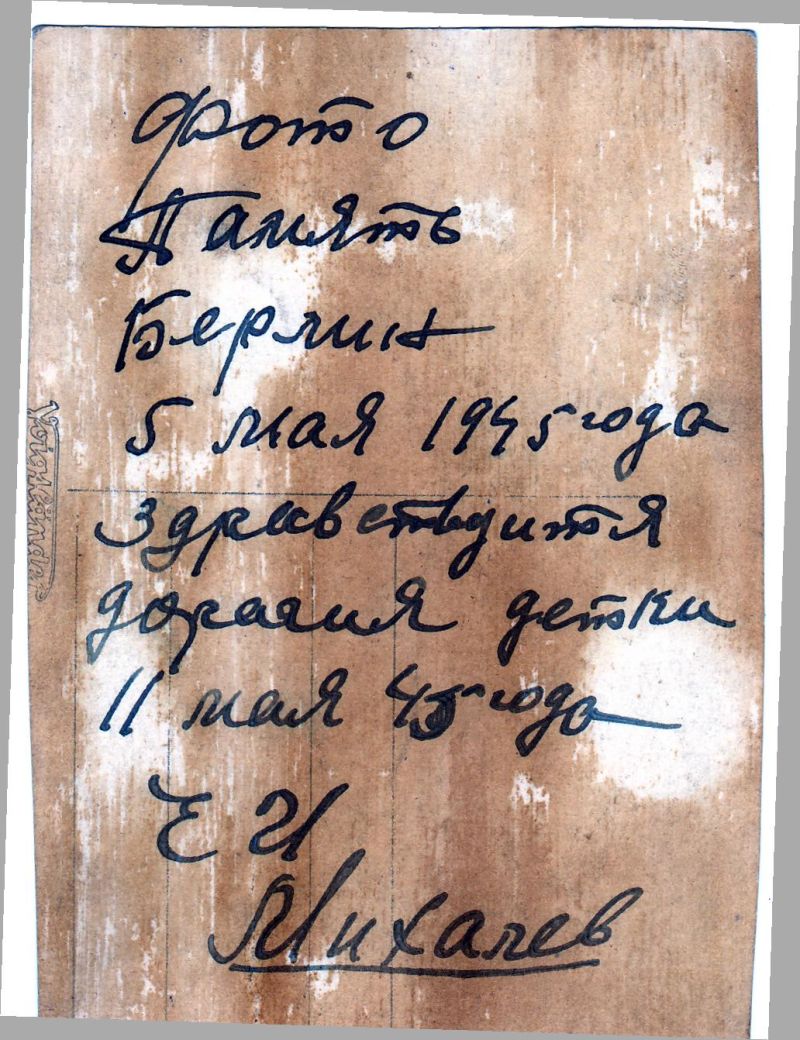 Фото
Память
Берлин
5 мая 1945 года
Здравствуйтя
дорагия детки
11 мая 45 года
Е И
Михалев
Voigtländer